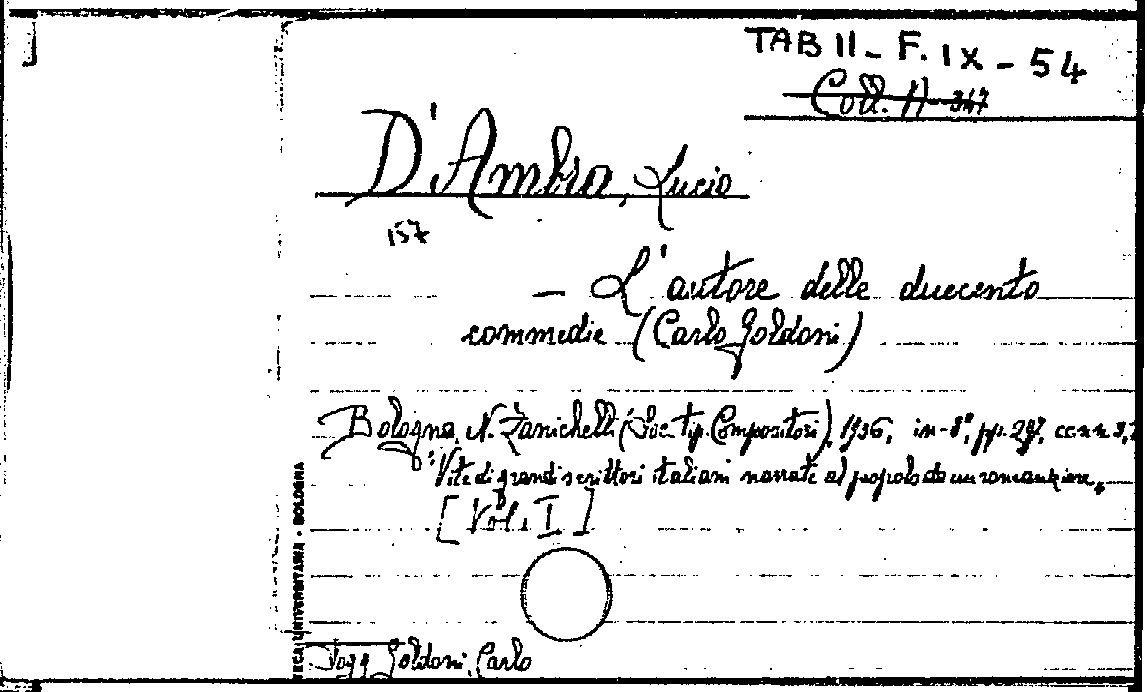 TAB II - F. IX - 54
Coll. A - 347
D'Ambra, Lucio
157
- L'autore delle duecento
commedie (Carlo Goldoni)
Bologna, N. Zanichelli (Soc. Tip. Compositori), 1936, in-8°, pp. 297,
"Vite di grandi scrittori italiani narrate al popolo da un romanziere,,
[Vol. I]
Sogg. Goldoni, Carlo
TECA UNIVERSITARIA - BOLOGNA